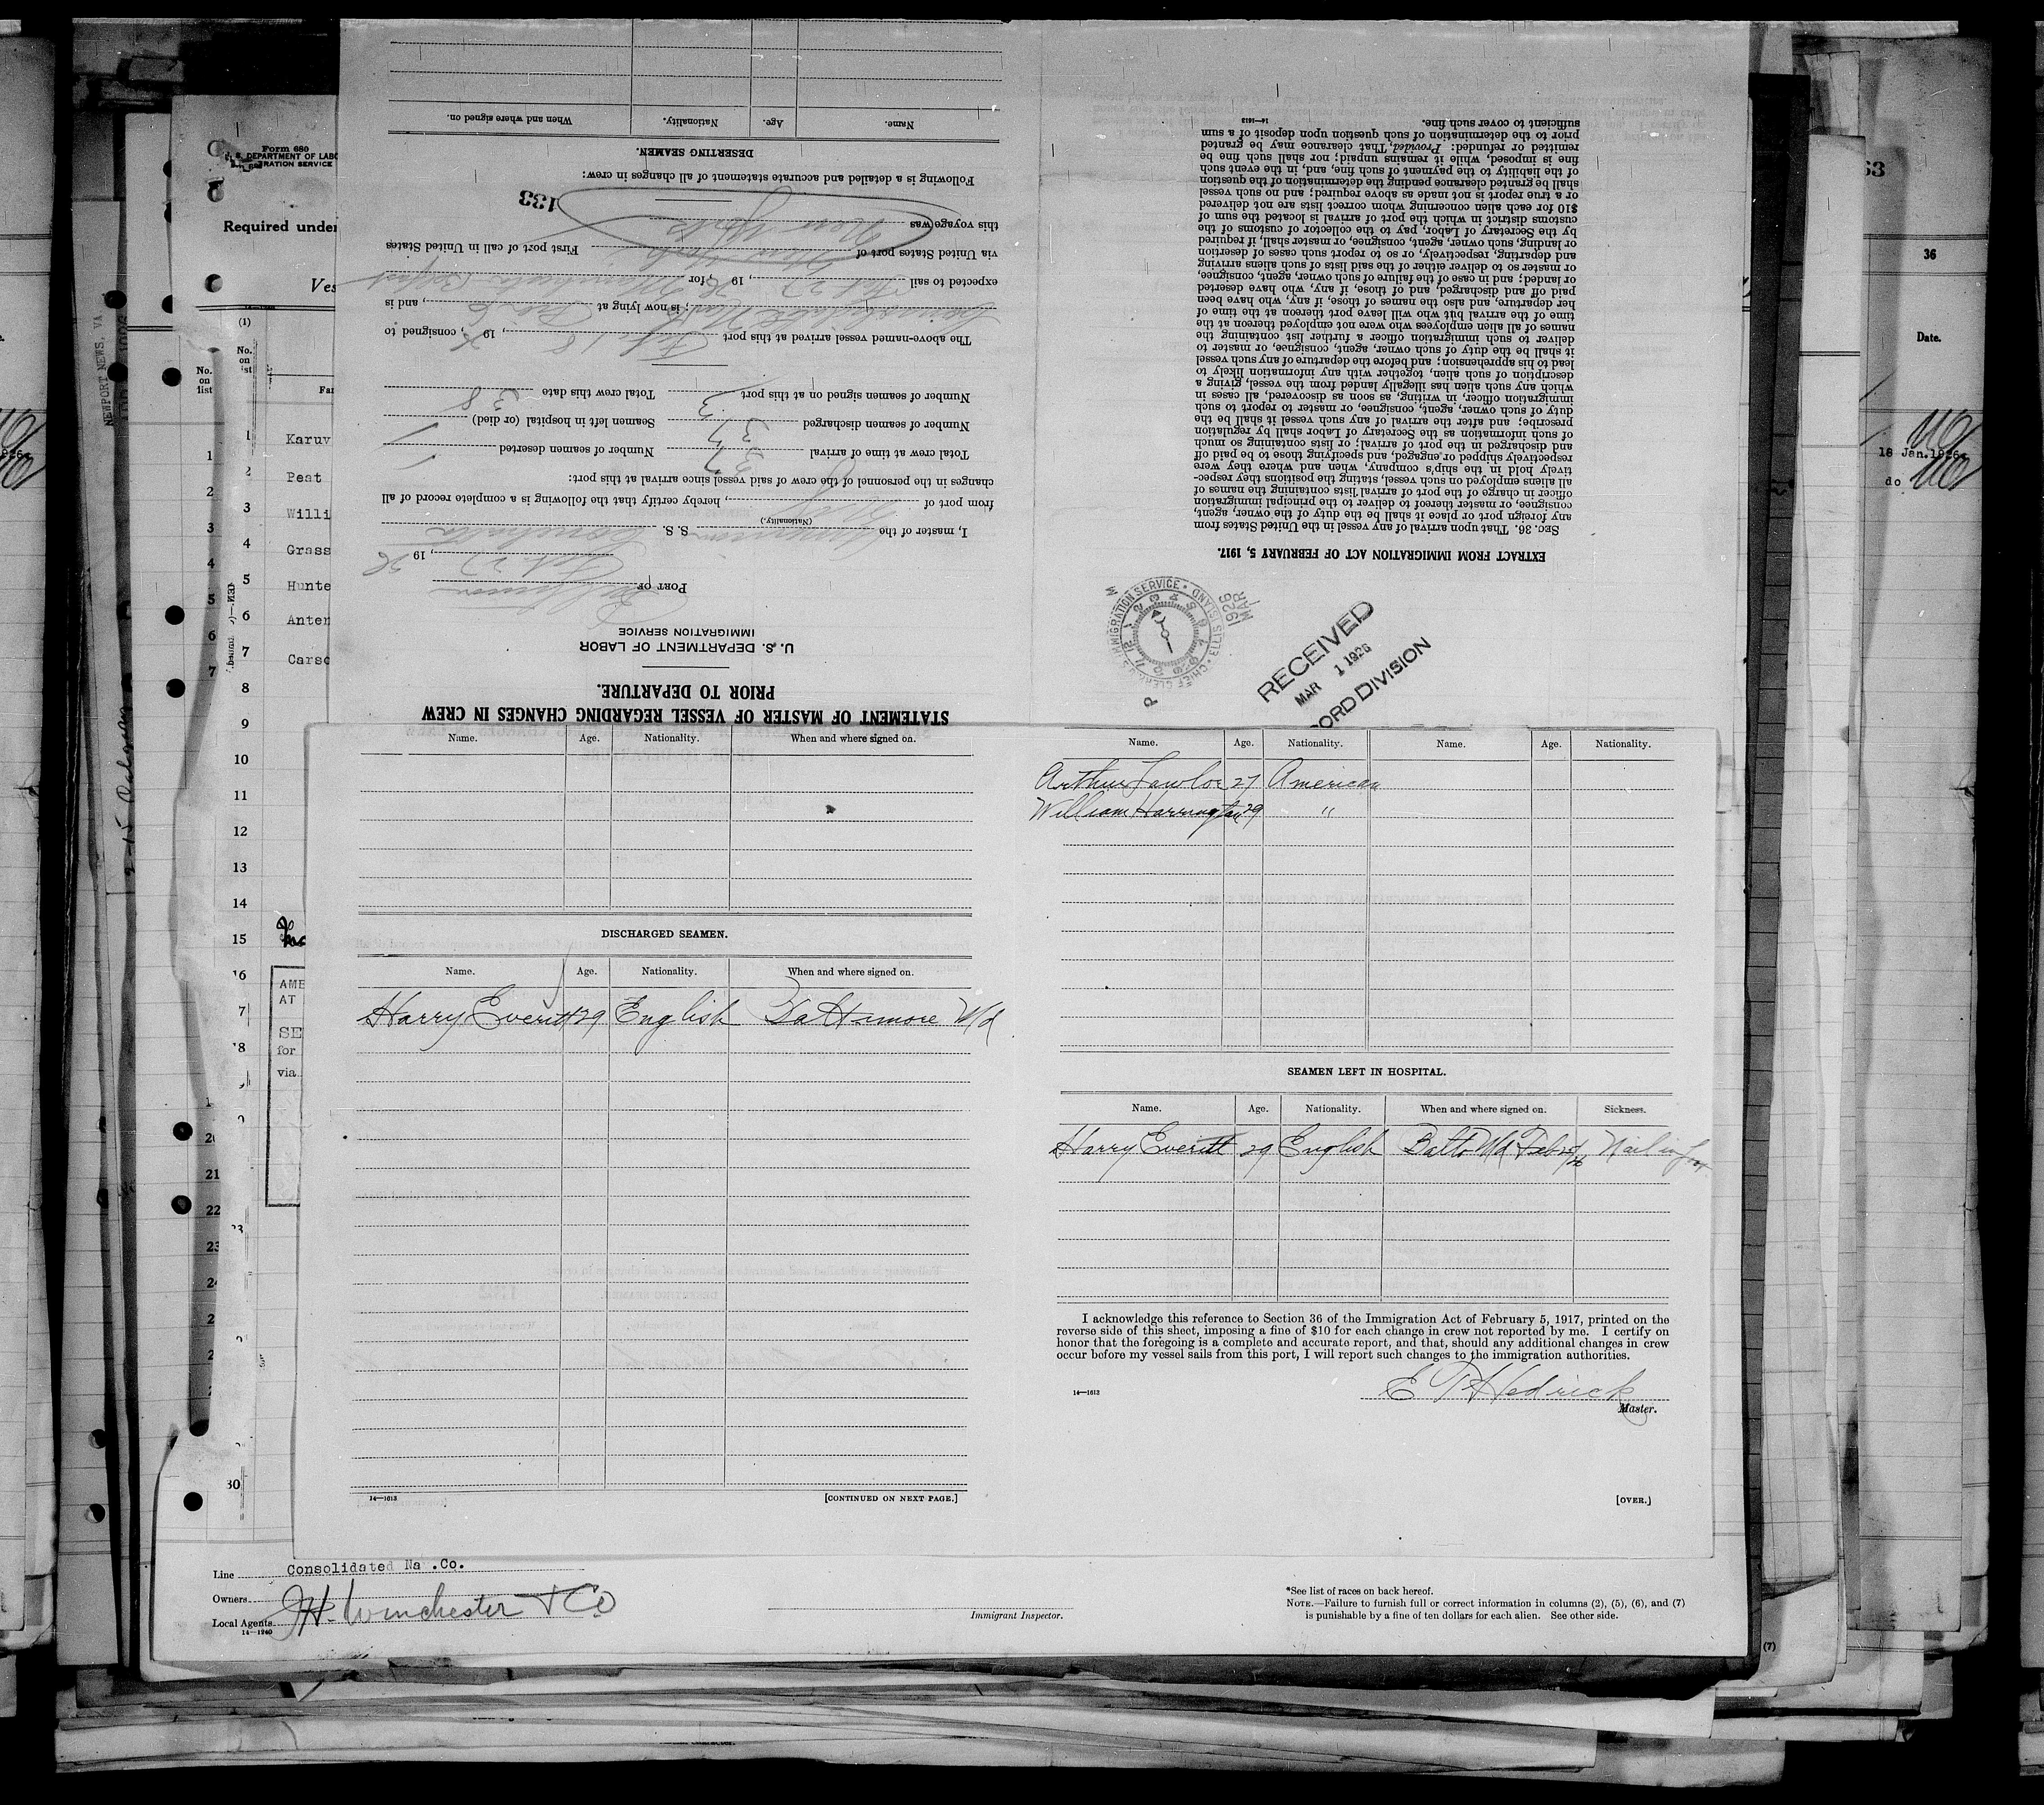 STATEMENT OF MASTER OF VESSEL REGARDING CHANGES IN CREW
PRIOR TO DEPARTURE.
U. S. DEPARTMENT OF LABOR
IMMIGRATION SERVICE
PORT OF Baltimore
Feb 27, 1926
I, master of the American S. S.
(Nationality.)
from port of, hereby certify that the following is a complete record of all
changes in the personnel of the crew of said vessel since arrival at this port:
Total crew at time of arrival 37 Number of seamen deserted
Number of seamen discharged Seamen left in hospital (or died) 1
Number of seamen signed on at this port Total crew this date 38
The above-named vessel arrived at this port Feb. 18, 19, consigned to
; is now lying at, and is
expected to sail Feb 27, 19 for Manchester Belfast
via United States port of New York First port of call in United States
this voyage was New York
133
Following is a detailed and accurate statement of all changes in crew:
DESERTING SEAMEN.
Name. Age. Nationality. When and where signed on.
EXTRACT FROM IMMIGRATION ACT OF FEBRUARY 5, 1917.
SEC. 36. That upon arrival of any vessel in the United States from
any foreign port or place it shall be the duty of the owner, agent,
consignee, or master thereof to deliver to the principal immigration
officer in charge of the port of arrival lists containing the names of
all aliens employed on such vessel, stating the positions they respec-
tively hold in the ship's company, when and where they were
respectively shipped or engaged, and specifying those to be paid off
and discharged in the port of arrival; or lists containing so much
of such information as the Secretary of Labor shall by regulation
prescribe; and after the arrival of any such vessel it shall be the
duty of such owner, agent, consignee, or master to report to such
immigration officer, in writing, as soon as discovered, all cases in
which any such alien has illegally landed from the vessel, giving a
description of such alien, together with any information likely to
lead to his apprehension; and before the departure of any such vessel
it shall be the duty of such owner, agent, consignee, or master to
deliver to such immigration officer a further list containing the
names of all alien employees who were not employed thereon at the
time of the arrival but who will leave port thereon at the time of
her departure, and also the names of those, if any, who have been
paid off and discharged, and of those, if any, who have deserted
or landed; and in case of the failure of such owner, agent, consignee,
or master so to deliver either of the said lists of such aliens arriving
and departing, respectively, or so to report such cases of desertion
or landing, such owner, agent, consignee, or master shall, if required
by the Secretary of Labor, pay to the collector of customs of the
customs district in which the port of arrival is located the sum of
$10 for each alien concerning whom correct lists are not delivered
or a true report is not made as above required; and no such vessel
shall be granted clearance pending the determination of the question
of the liability to the payment of such fine, and, in the event such
fine is imposed, while it remains unpaid; nor shall such fine be
remitted or refunded: Provided, That clearance may be granted
prior to the determination of such question upon deposit of a sum
sufficient to cover such fine.
14—1613
IMMIGRATION SERVICE • ELLIS ISLAND
1926 MAR
RECEIVED
MAR 1 1926
ORD DIVISION
Name. Age. Nationality. When and where signed on.
DISCHARGED SEAMEN.
Name. Age. Nationality. When and where signed on.
Harry Everitt 29 English Baltimore Md
14—1613 [CONTINUED ON NEXT PAGE.]
Name. Age. Nationality. Name. Age. Nationality.
Arthur Lawlor 27 American
William Harrington 29 "
SEAMEN LEFT IN HOSPITAL.
Name. Age. Nationality. When and where signed on. Sickness.
Harry Everitt 29 English Balto Md Feb 25/26 Nail in foot
I acknowledge this reference to Section 36 of the Immigration Act of February 5, 1917, printed on the
reverse side of this sheet, imposing a fine of $10 for each change in crew not reported by me. I certify on
honor that the foregoing is a complete and accurate report, and that, should any additional changes in crew
occur before my vessel sails from this port, I will report such changes to the immigration authorities.
14—1613
E P Hedrick
Master.
[OVER.]
Form 680
U. S. DEPARTMENT OF LABO
Required under
Ves
(1)
No. on list
Karuv
Peat
Willi
Grass
Hunte
Anten
Carso
AME
AT
SE
for
via
Line Consolidated Na .Co.
Owners
Local Agents J.H. Winchester & Co
14—1240
Immigrant Inspector.
*See list of races on back hereof.
NOTE.—Failure to furnish full or correct information in columns (2), (5), (6), and (7)
is punishable by a fine of ten dollars for each alien. See other side.
NEWPORT NEWS, VA
36
Date.
18 Jan. 1926
do
(7)